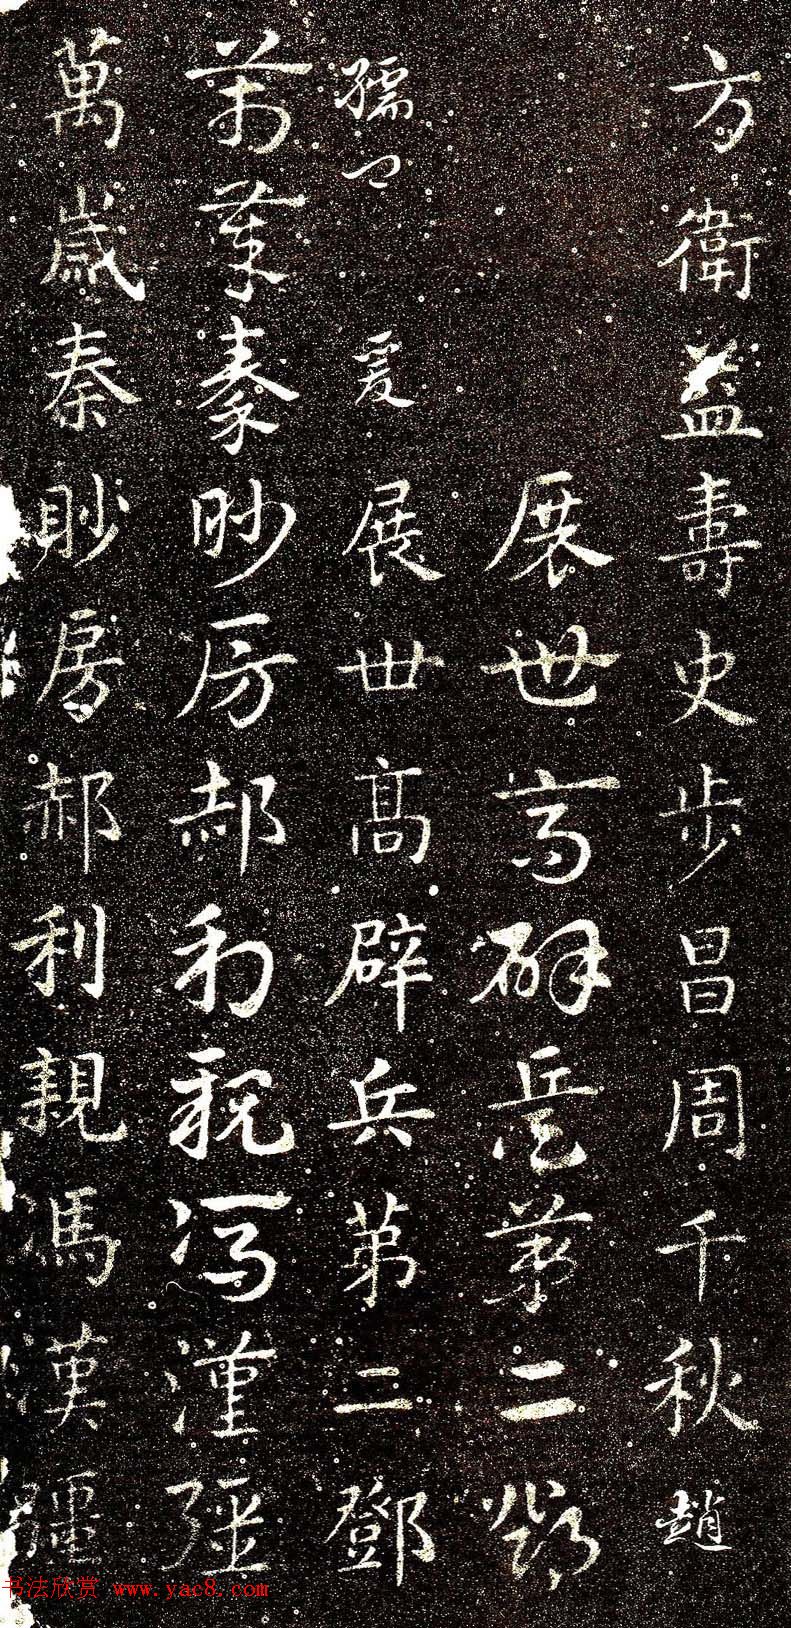 方衛益壽史步昌周千秋趙
展世高辟兵第二鄧
孺卿 爰展世高辟兵第二鄧
萬歲秦眇房郝利親馮漢彊
萬歲秦眇房郝利親馮漢彊
书法欣赏 www.yac8.com